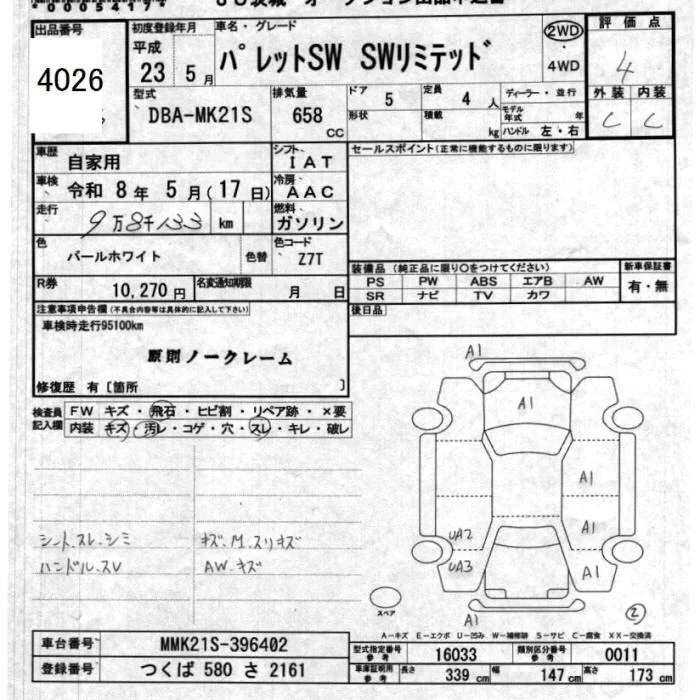 *0005417*
出品番号
4026
初度登録年月
平成
23 5月
車名・グレード
パレットSW SWリミテッド
2WD
・
4WD
評価点
4
外装 内装
C C
型式
DBA-MK21S
排気量
658
CC
ドア
5
形状
定員
4人
積載
kg
ディーラー・並行
モデル年式 年
ハンドル 左・右
車歴
自家用
シフト
IAT
車検
令和 8年 5月(17日)
冷房
AAC
走行
9万8千133 km
燃料
ガソリン
色
パールホワイト
色替
色コード
Z7T
R券
10,270円
名変通知期限
月 日
セールスポイント(正常に機能するものに限ります)
装備品(純正品に限り○をつけてください)
PS PW ABS エアB AW
SR ナビ TV カワ
新車保証書
有・無
後日品
注意事項申告欄(不具合内容等は具体的に記入して下さい)
車検時走行95100km
原則ノークレーム
修復歴 有〔箇所 〕
検査員記入欄
FW キズ・飛石・ヒビ割・リペア跡・×要
内装 キズ・汚レ・コゲ・穴・スレ・キレ・破レ
シートスレ.シミ
ハンドルスレ
キズ.M.スリキズ
AW.キズ
A1
A1
A1
UA2
A1
UA3
A1
A1
スペア
2
A-キズ E-エクボ U-凹み W-補修跡 S-サビ C-腐食 XX-交換済
車台番号
MMK21S-396402
登録番号
つくば 580 さ 2161
型式指定番号
参考
16033
類別区分番号
参考
0011
車庫証明用
参考
長さ 339 cm
幅 147 cm
高さ 173 cm